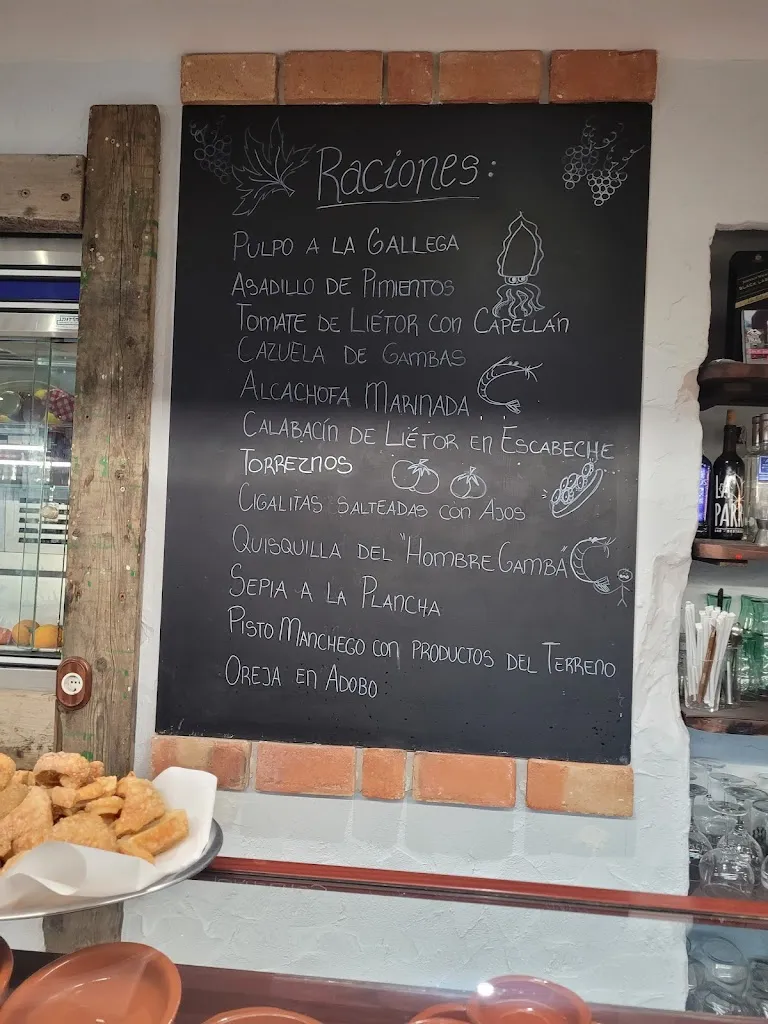 Raciones:
PULPO A LA GALLEGA
ASADILLO DE PIMIENTOS
TOMATE DE LIÉTOR CON CAPELLÁN
CAZUELA DE GAMBAS
ALCACHOFA MARINADA
CALABACÍN DE LIÉTOR EN ESCABECHE
TORREZNOS
CIGALITAS SALTEADAS CON AJOS
QUISQUILLA DEL "HOMBRE GAMBA"
SEPIA A LA PLANCHA
PISTO MANCHEGO CON PRODUCTOS DEL TERRENO
OREJA EN ADOBO